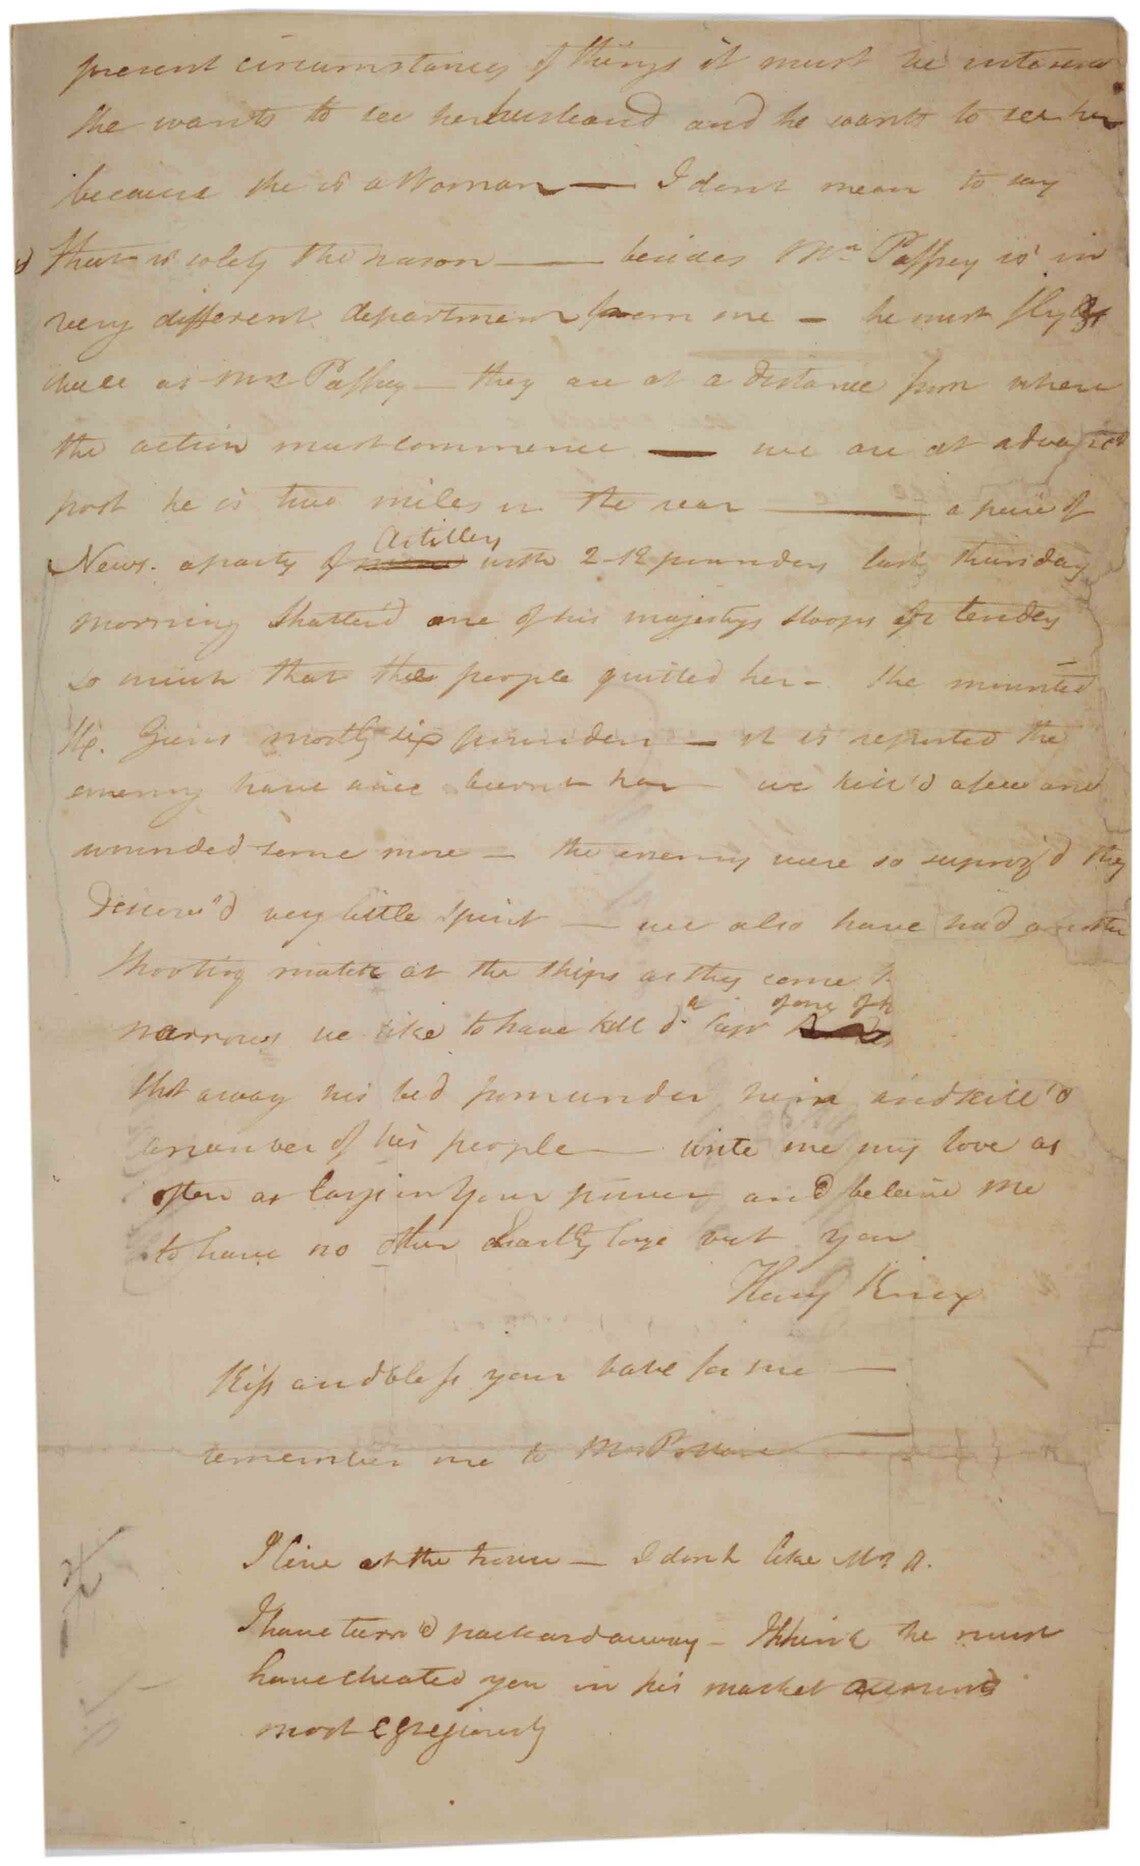 present circumstances of things it must be
she wants to see her husband and he wants to see her
because she is a Woman — I dont mean to say
that is solely the reason — besides Mr Paffrey is in
very different department from me — he must fly
as Mrs Paffrey — they are at a distance from where
the action must commence — we are at advanced
post he is two miles in the rear — a peice of
News. a party of Artillery with 2-12 pounders last thursday
morning Shatter'd one of his majestys Sloops or tenders
so much that the people quitted her — She mounted
Guns mostly six pounders — it is reported the
enemy have since burnt her — we kill'd a few and
wounded some more — the enemy were so supriz'd they
discover'd very little Spirit — we also have had another
Shooting match at the Ships as they come
narrows we like to have kill'd a Capt of one of
shot away his bed from under him and kill'd
a number of his people — write me my love as
often as lays in Your power and beleive me
to have no other Earthly love but you
Henry Knox
Kiss and bless your babe for me —
remember me to
I live at the town — I dont like Mr A.
I have turn'd packard away — I think he must
have cheated you in his market accounts
most egregiously